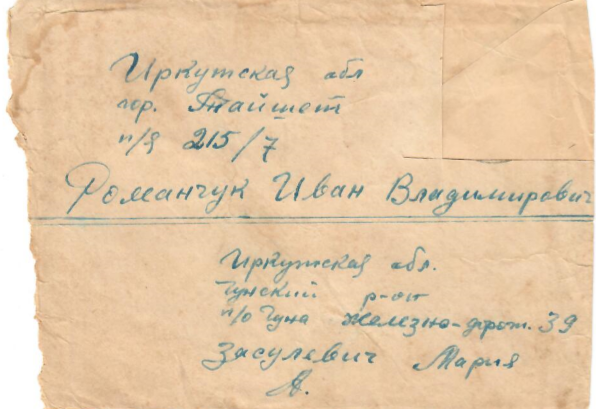 Иркутская обл
гор. Тайшет
п/я 215/7
Романчук Иван Владимирович
Иркутская обл.
Чунский р-он
п/о Чуна железно-дорож. 39
Засулевич Мария
А.